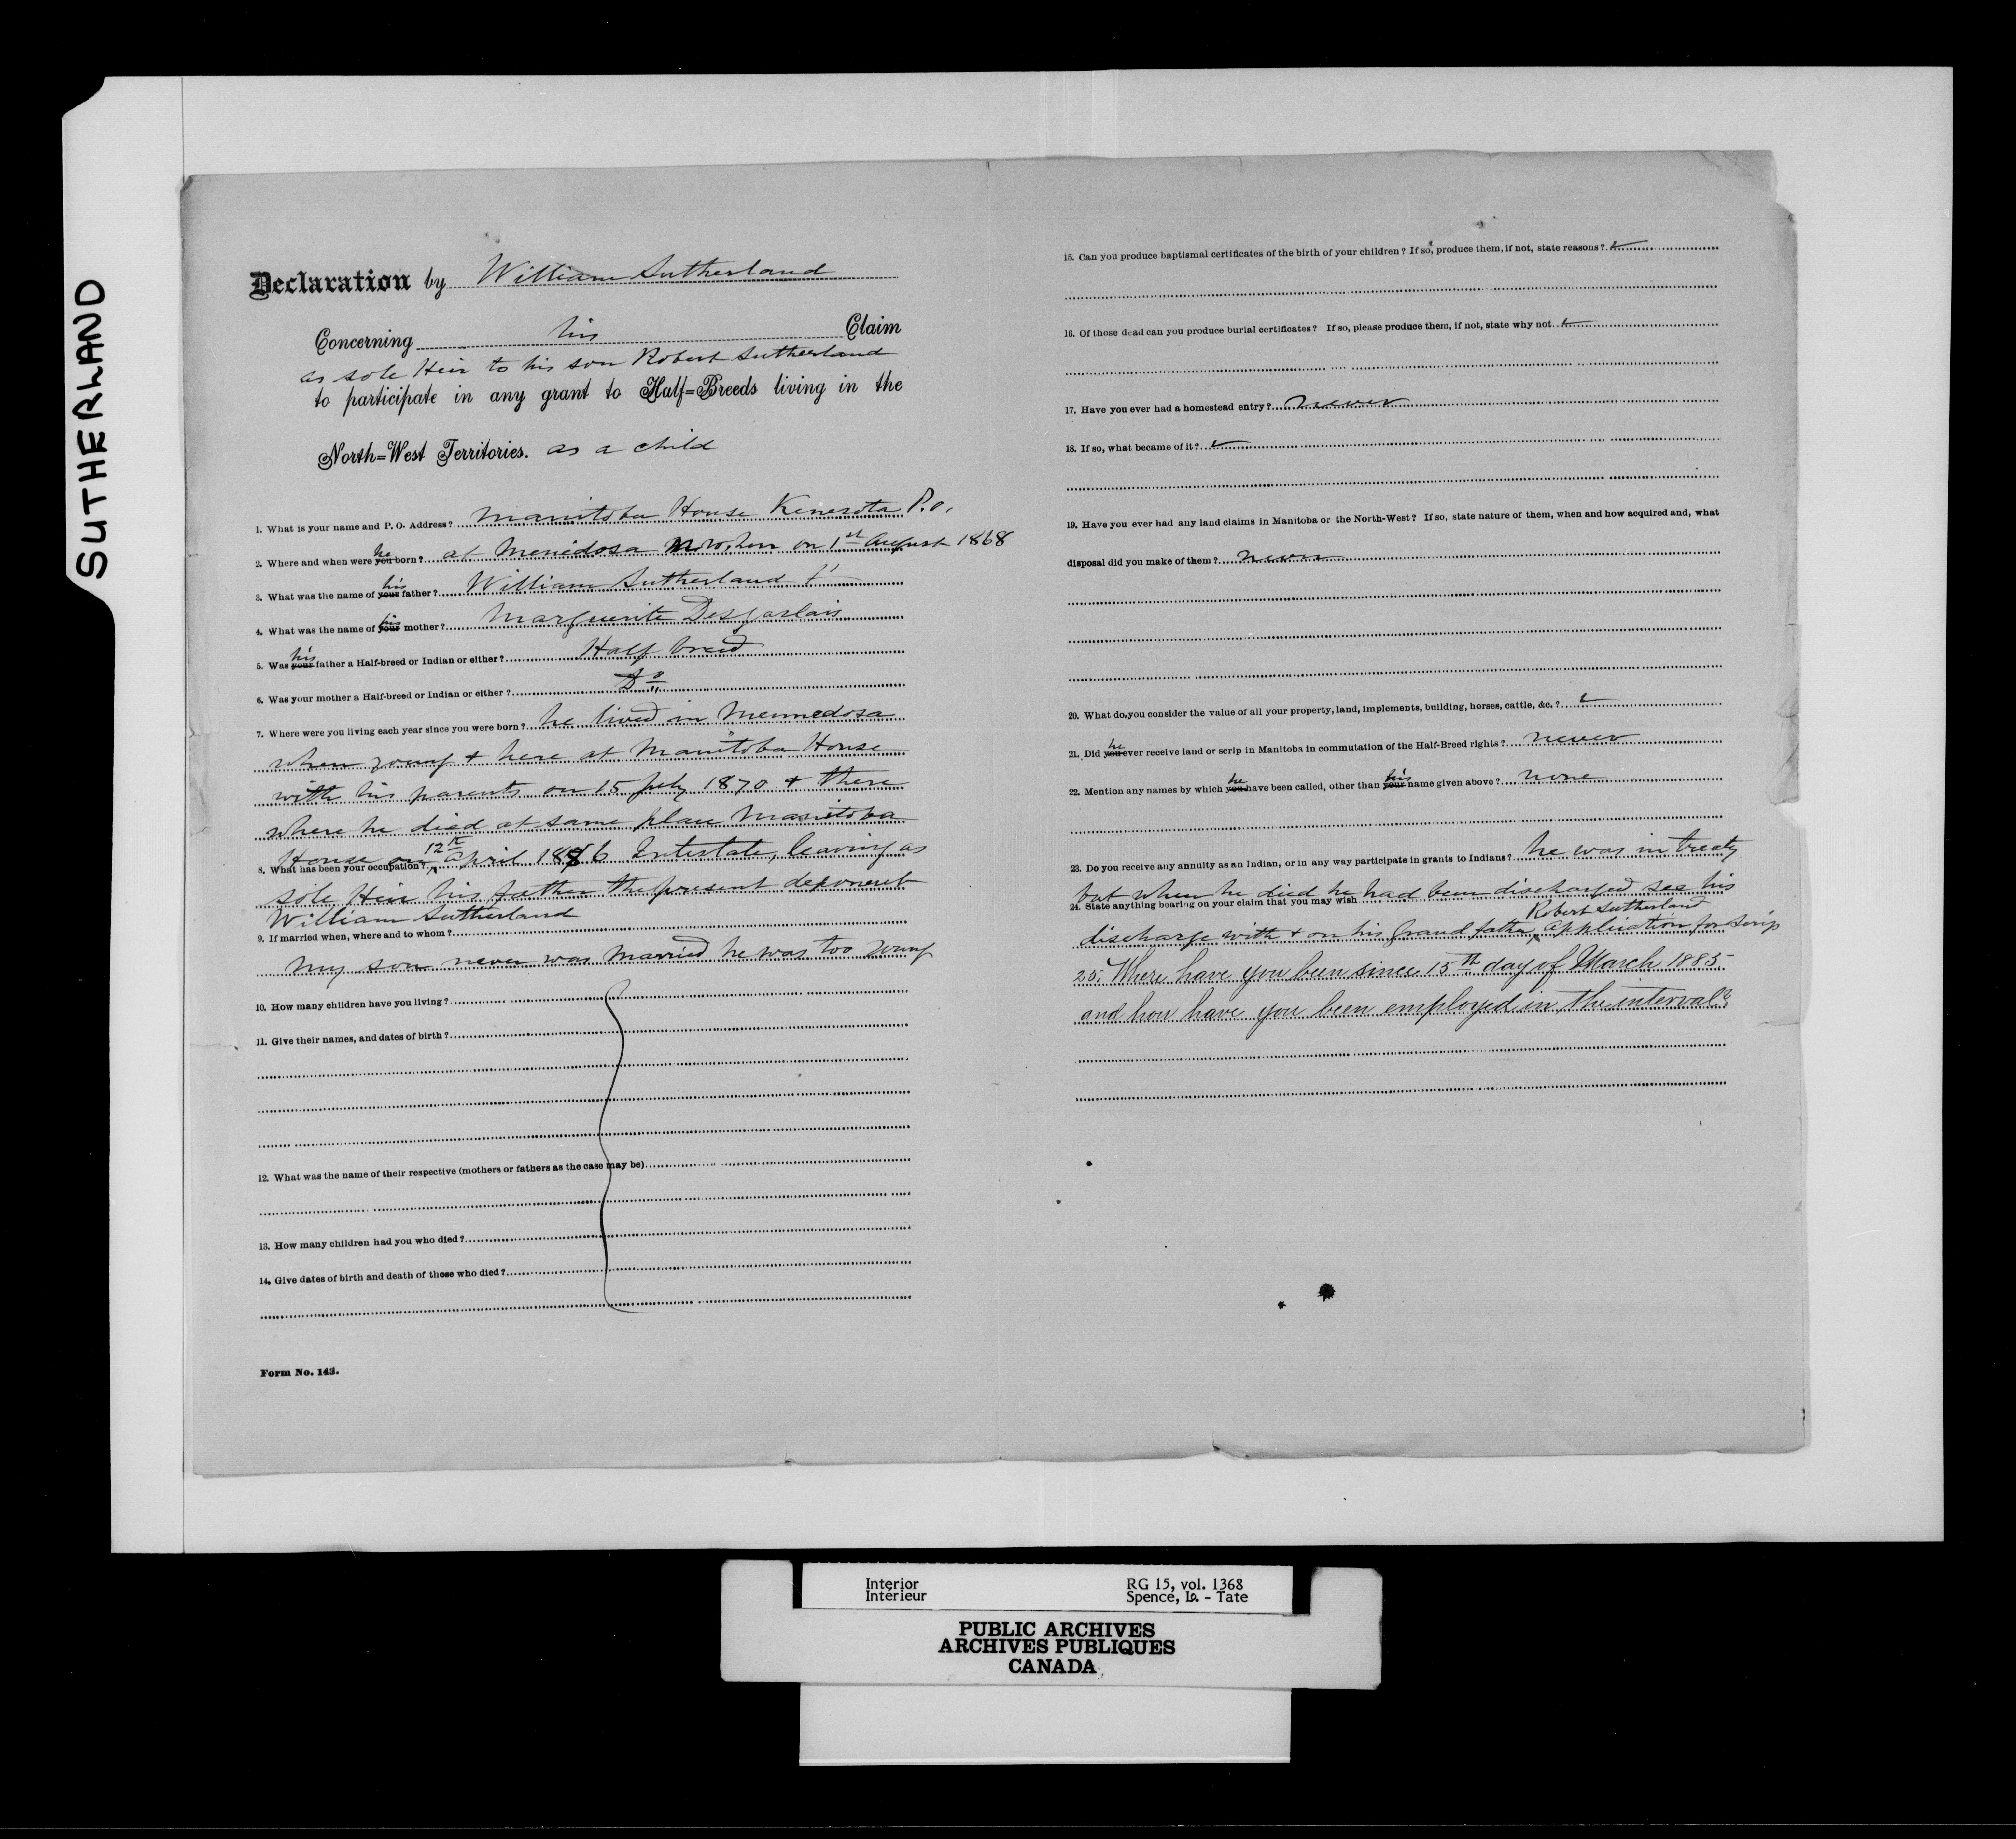 SUTHERLAND
Declaration by William Sutherland
Concerning his Claim
as sole Heir to his son Robert Sutherland
to participate in any grant to Half=Breeds living in the
North=West Territories. as a child
1. What is your name and P. O. Address? Manitoba House Kinesota P.O.
2. Where and when were you he born? at Menedosa on 1st August 1868
3. What was the name of your his father? William Sutherland
4. What was the name of your his mother? Marguerite Desjarlais
5. Was your his father a Half-breed or Indian or either? Half breed
6. Was your mother a Half-breed or Indian or either? Do
7. Where were you living each year since you were born? he lived in Mennedosa
when young & here at Manitoba House
with his parents on 15 July 1870 & there
where he died at same place Manitoba
House on 12th April 1886 Intestate, leaving as
8. What has been your occupation?
sole Heir his father the present deponent
William Sutherland
9. If married when, where and to whom?
My son never was married he was too young
10. How many children have you living?
11. Give their names, and dates of birth?
12. What was the name of their respective (mothers or fathers as the case may be)
13. How many children had you who died?
14. Give dates of birth and death of those who died?
Form No. 143.
15. Can you produce baptismal certificates of the birth of your children? If so, produce them, if not, state reasons?
16. Of those dead can you produce burial certificates? If so, please produce them, if not, state why not.
17. Have you ever had a homestead entry? never
18. If so, what became of it?
19. Have you ever had any land claims in Manitoba or the North-West? If so, state nature of them, when and how acquired and, what
disposal did you make of them? never
20. What do you consider the value of all your property, land, implements, building, horses, cattle, &c.?
21. Did you he ever receive land or scrip in Manitoba in commutation of the Half-Breed rights? never
22. Mention any names by which you he have been called, other than your his name given above? none
23. Do you receive any annuity as an Indian, or in any way participate in grants to Indians? he was in treaty
but when he died he had been discharged see his
24. State anything bearing on your claim that you may wish
discharge with & on his Grand father Robert Sutherland application for scrip
25. Where have you been since 15th day of March 1885
and how have you been employed in the interval?
Interior
Intérieur
RG 15, vol. 1368
Spence, Lo. - Tate
PUBLIC ARCHIVES
ARCHIVES PUBLIQUES
CANADA